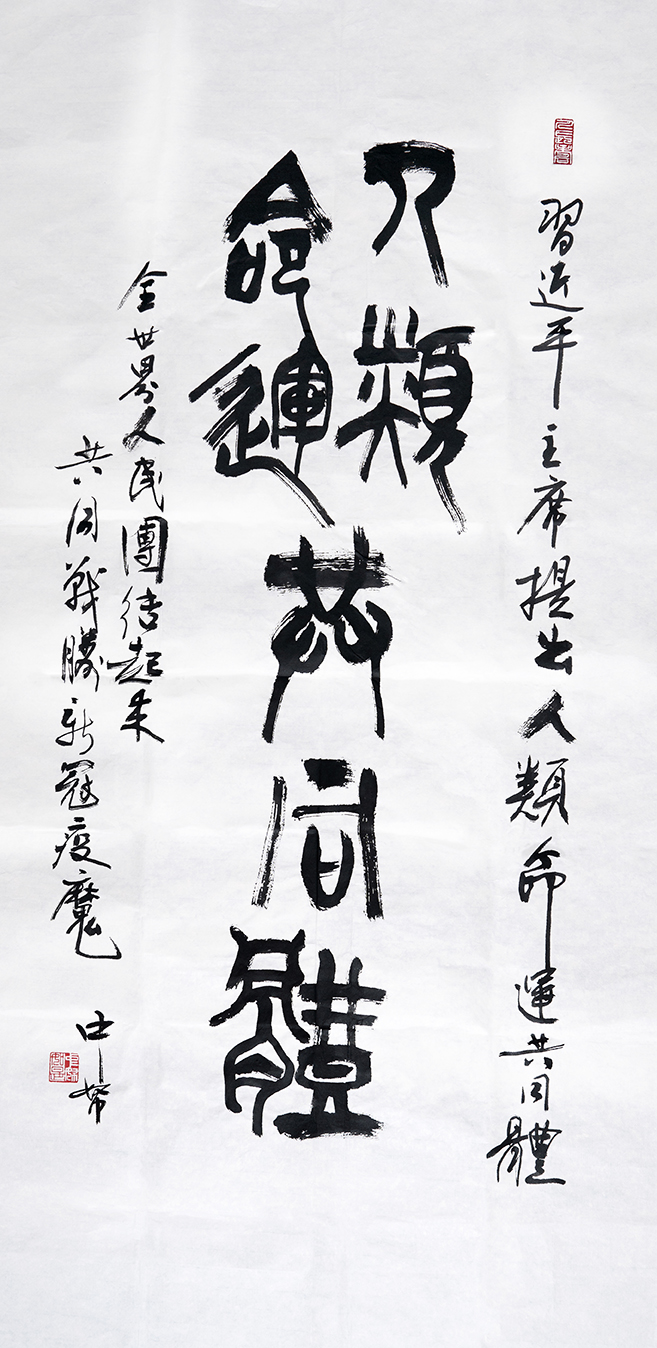 習近平主席提出人類命運共同體
人類
命運
共同體
全世界人民團結起來
共同戰勝新冠疫魔